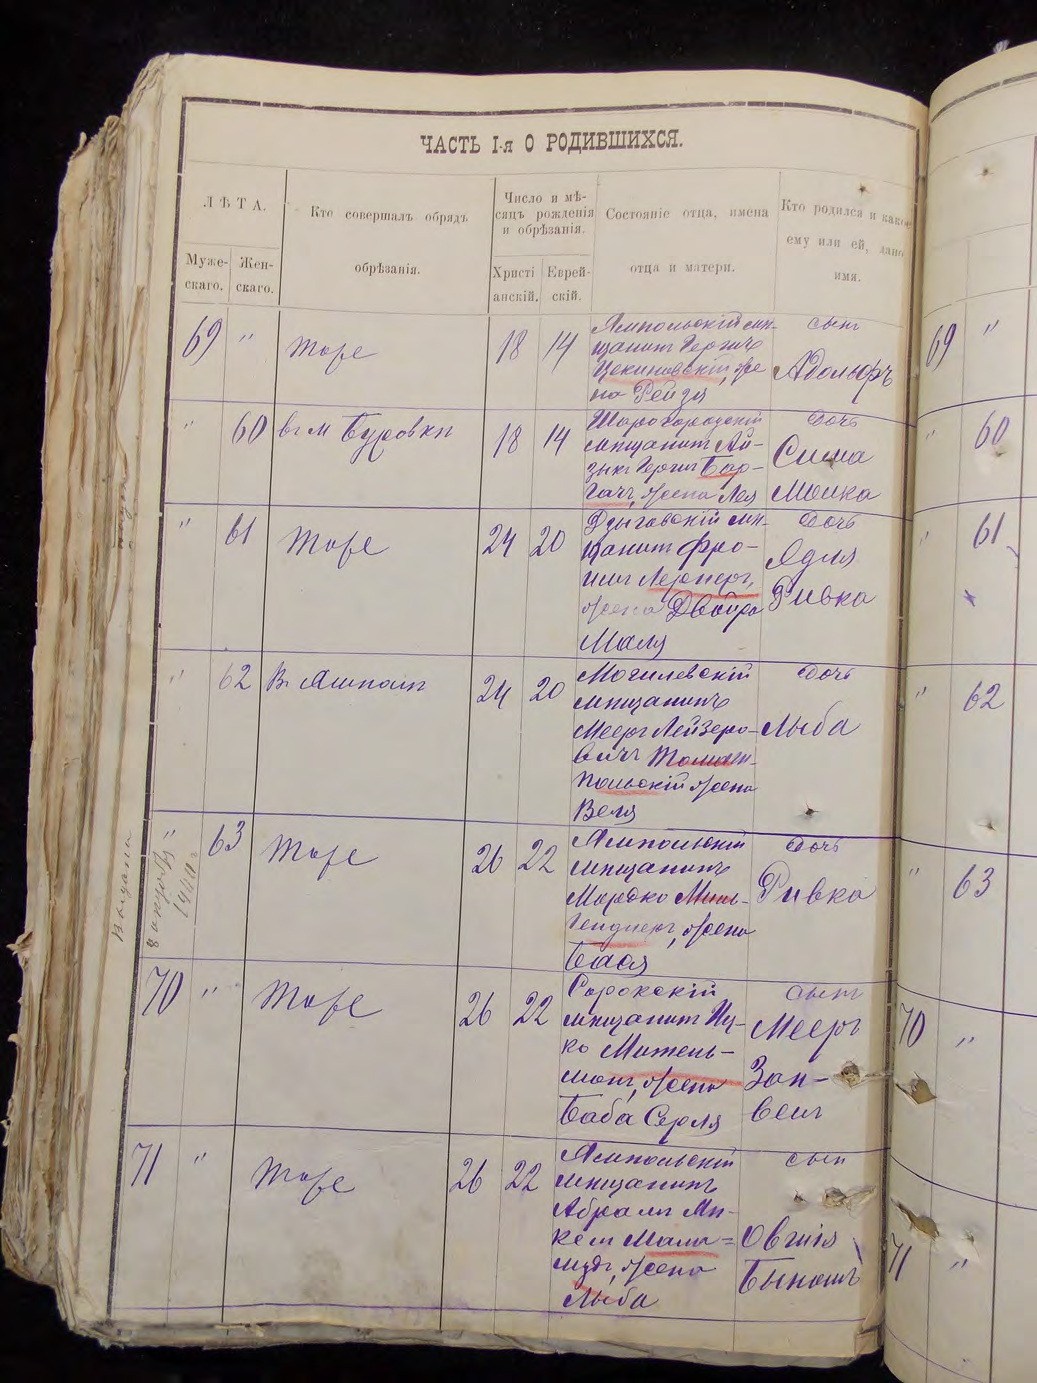 ЧАСТЬ I-я О РОДИВШИХСЯ.
ЛѢТА.
Муже-
скаго.
Жен-
скаго.
Кто совершалъ обрядъ
обрѣзанія.
Число и мѣ-
сяцъ рожденія
и обрѣзанія.
Христі
анскій.
Еврей-
скій.
Состояніе отца, имена
отца и матери.
Кто родился и како-
ему или ей, дано
имя.
69 "
Тоже
18 14
Ямпольскій мѣ-
щанинъ Гершъ
Цекиновскій, же
на Рейзя
сынъ
Адольфъ
" 60
въ м Буровкѣ
18 14
Шарогородскій
мѣщанинъ Ай-
зыкъ Гершъ
жена Лея
дочь
Сима
Малка
" 61
Тоже
24 20
мѣ-
щанинъ Фро-
имъ Лернеръ,
жена Двойра
Маля
дочь
Адля
Ривка
" 62
Въ Ямполѣ
24 20
Могилевскій
мѣщанинъ
Мееръ Лейзеро-
вичъ Томаш-
польскій жена
Веля
дочь
Лыба
" 63
Тоже
26 22
Ямпольскій
мѣщанинъ
Мордко
жена
Бася
дочь
Ривка
Выдана
70 "
Тоже
26 22
Сорокскій
мѣщанинъ Иц-
ко
жена
Баба Серля
сынъ
Мееръ
Зан-
велъ
71 "
Тоже
26 22
Ямпольскій
мѣщанинъ
Абрамъ Ми-
жена
Лыба
сынъ
Овшія
Бынешъ
69 "
" 60
" 61
" 62
" 63
70 "
71 "